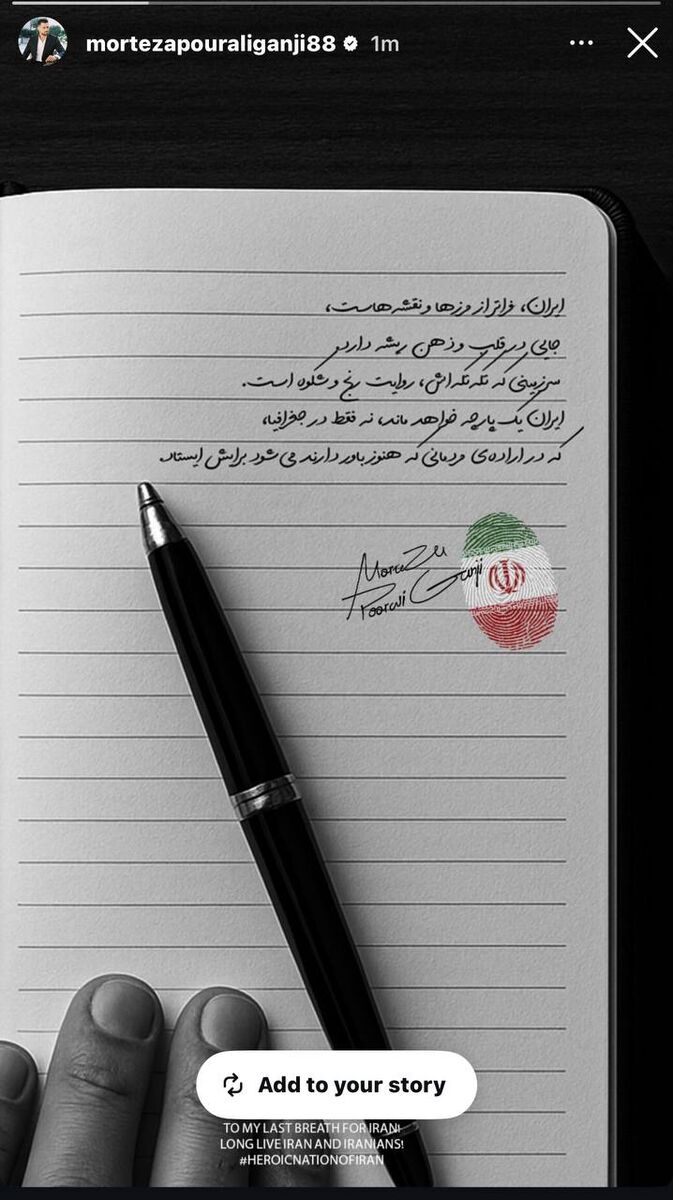 mortezapouraliganji88 1m
ایران، فراتر از مرزها و نقشه‌هاست،
جایی در قلب و ذهن ریشه دارد.
سرزمینی که تکه تکه‌اش، روایت رنج و شکوه است.
ایران یک پارچه خواهد ماند، نه فقط در جغرافیا،
که در اراده‌ی مردمانی که هنوز باور دارند می شود برایش ایستاد.
Morteza
Pourali Ganji
Add to your story
TO MY LAST BREATH FOR IRAN!
LONG LIVE IRAN AND IRANIANS!
#HEROICNATIONOFIRAN